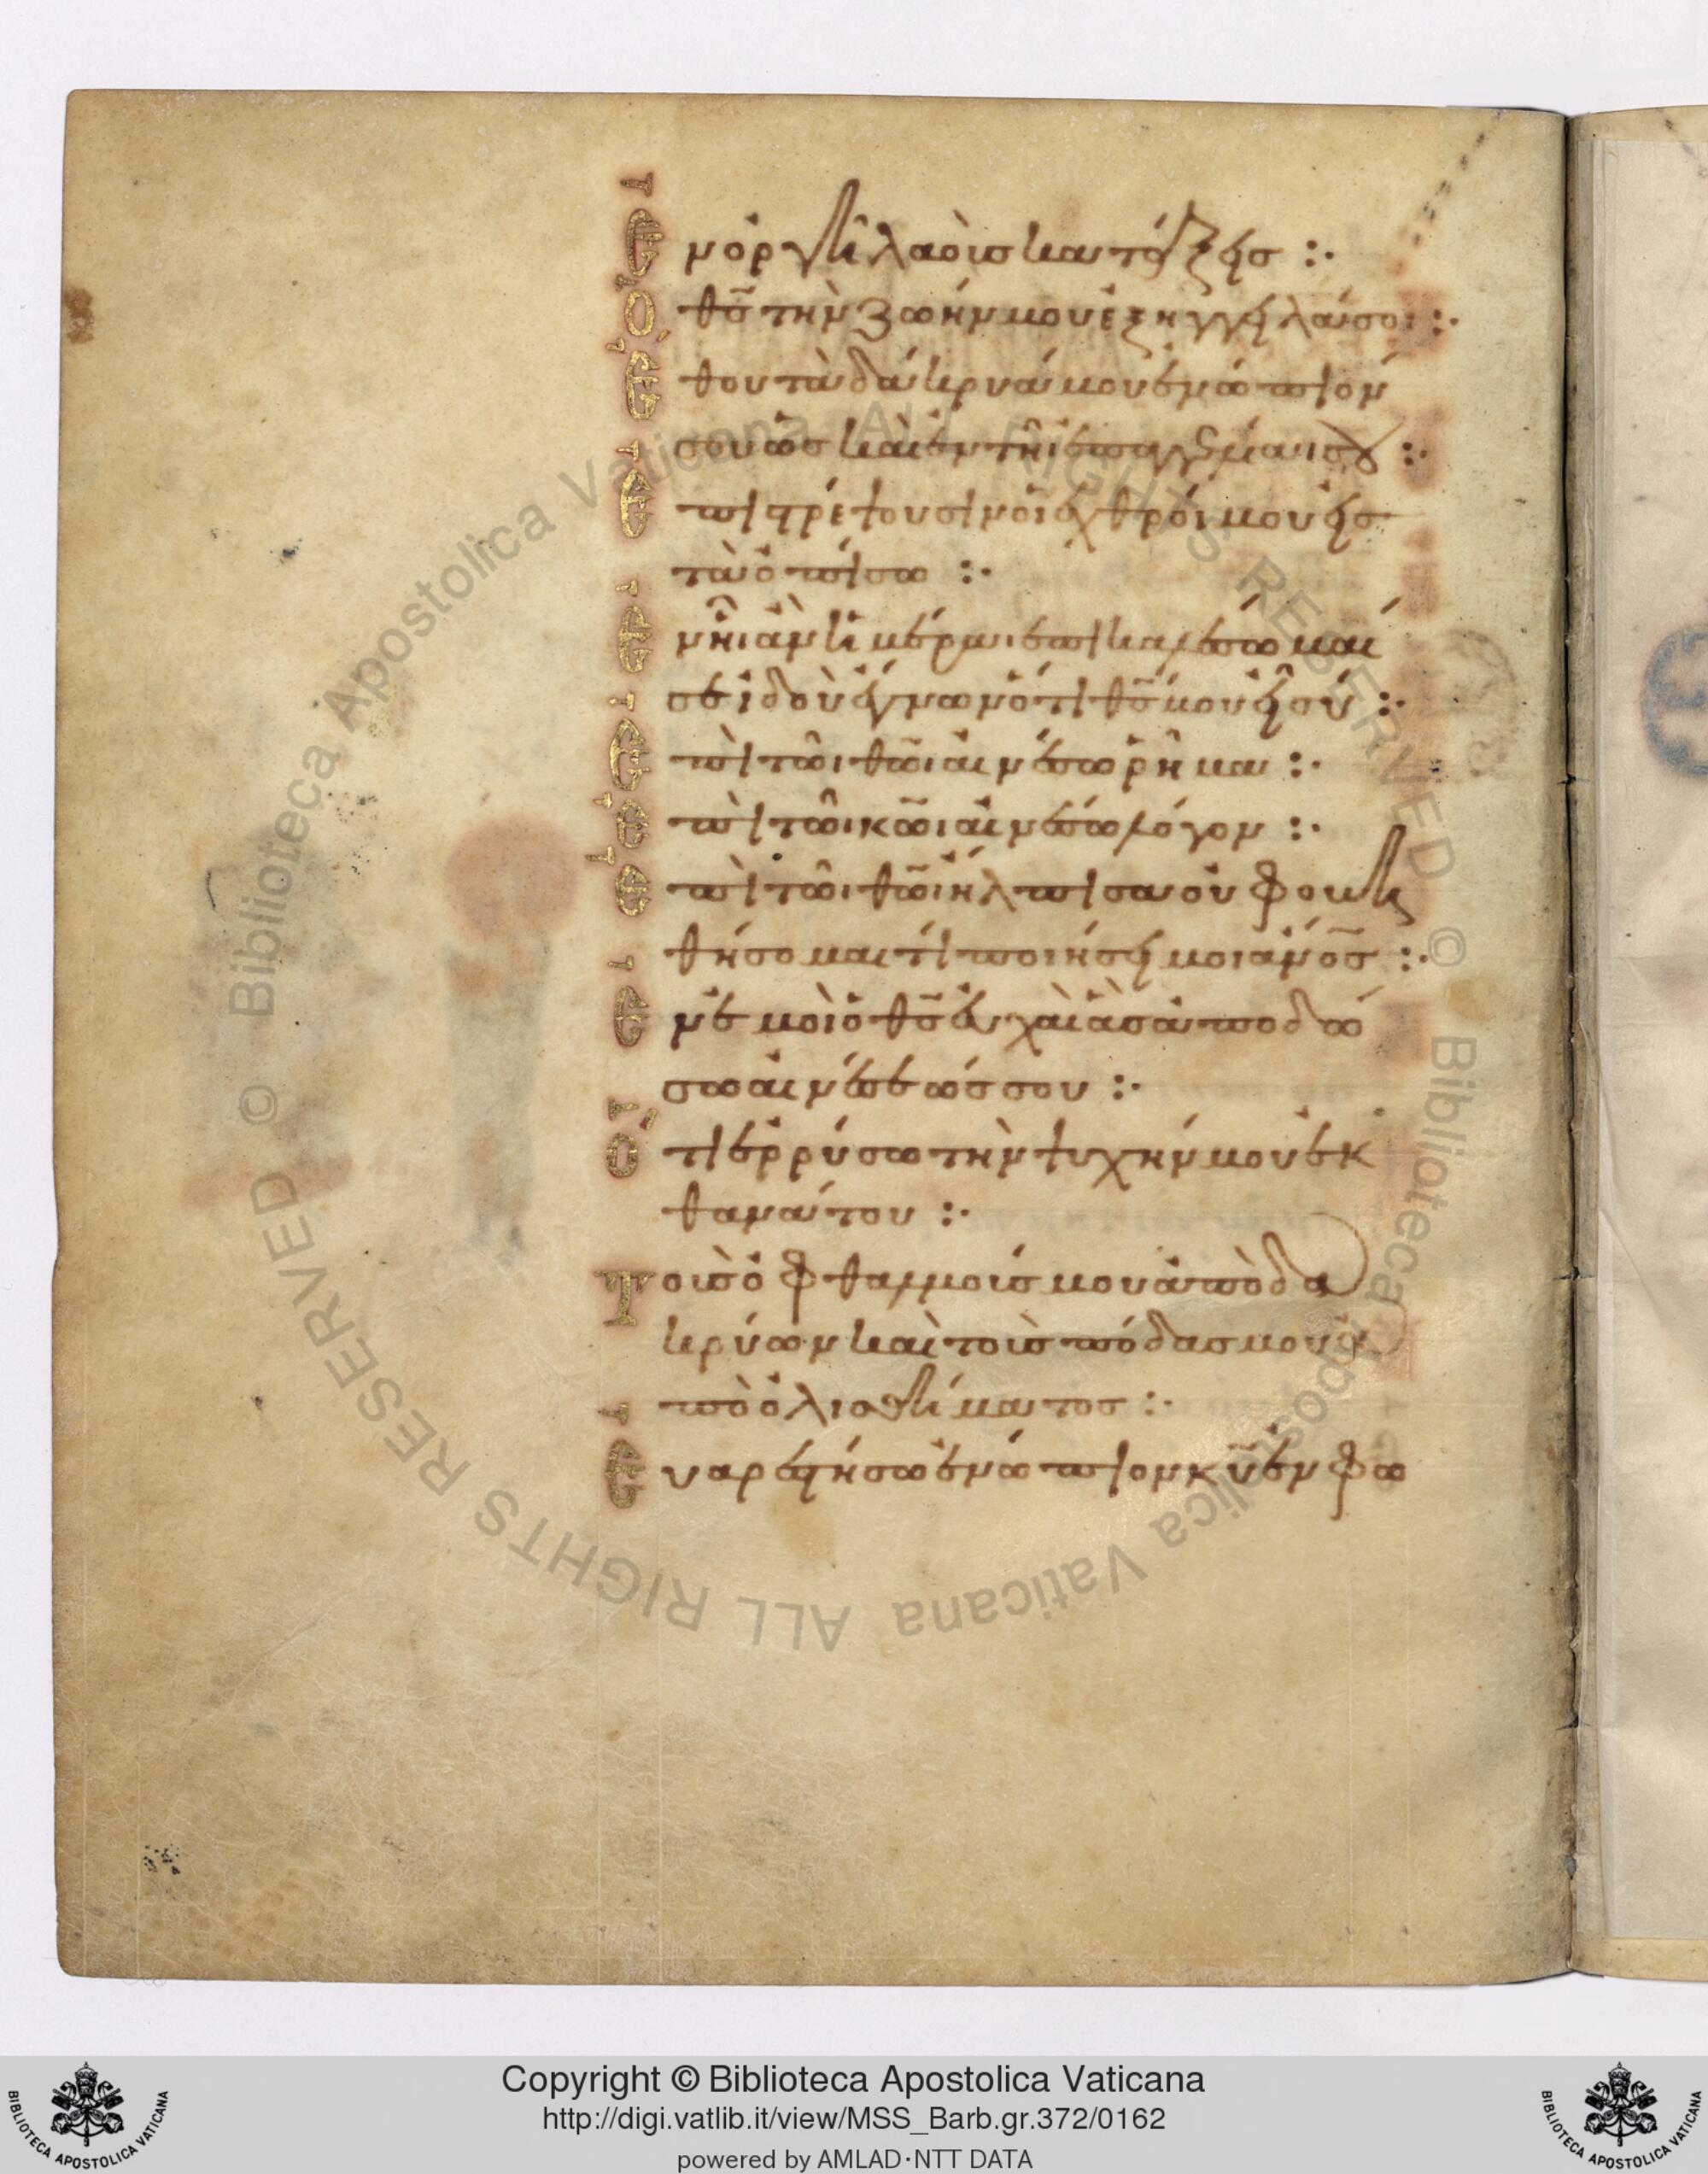 Ἐν ὀργῆ λαοὺς κατάξεις :·
Ὁ θς̄ τὴν ζωήν μου ἐξήγγειλά σοι :·
Ἔθου τὰ δάκρυά μου ἐνώπιόν
σου ὡς καὶ ἐν τῆι ἐπαγγελίαι σου :·
Ἐπιστρέψουσιν οἱ ἐχθροί μου εἰς
τὰ ὀπίσω :·
Ἐν ἧι ἂν ἡμέραι ἐπικαλέσωμαί
σε ἰδοὺ ἔγνων ὅτι θς̄ μου εἶ σύ :·
Ἐπὶ τῶι θῶι αἰνέσω ῥῆμα :·
Ἐπὶ τῶι κῶι αἰνέσω λόγον :·
Ἐπὶ τῶι θῶι ἤλπισα οὐ φοβη
θήσομαι τί ποιήσει μοι ἄνος̄ :·
Ἐν ἐμοὶ ὁ θς̄ εὐχαὶ ἃς ἀποδώ
σω αἰνέσεώς σου :·
Ὅτι ἐρρύσω τὴν ψυχήν μου ἐκ
θανάτου :·
Τοὺς ὀφθαλμούς μου ἀπὸ δα
κρύων καὶ τοὺς πόδας μου ἀ
πὸ ὀλισθήματος :·
Εὐαρεστήσω ἐνώπιον κῡ ἐν φω
© Biblioteca Apostolica Vaticana ALL RIGHTS RESERVED © Biblioteca Apostolica Vaticana ALL RIGHTS RESERVED
Copyright © Biblioteca Apostolica Vaticana
http://digi.vatlib.it/view/MSS_Barb.gr.372/0162
powered by AMLAD·NTT DATA
BIBLIOTECA APOSTOLICA VATICANA
BIBLIOTECA APOSTOLICA VATICANA